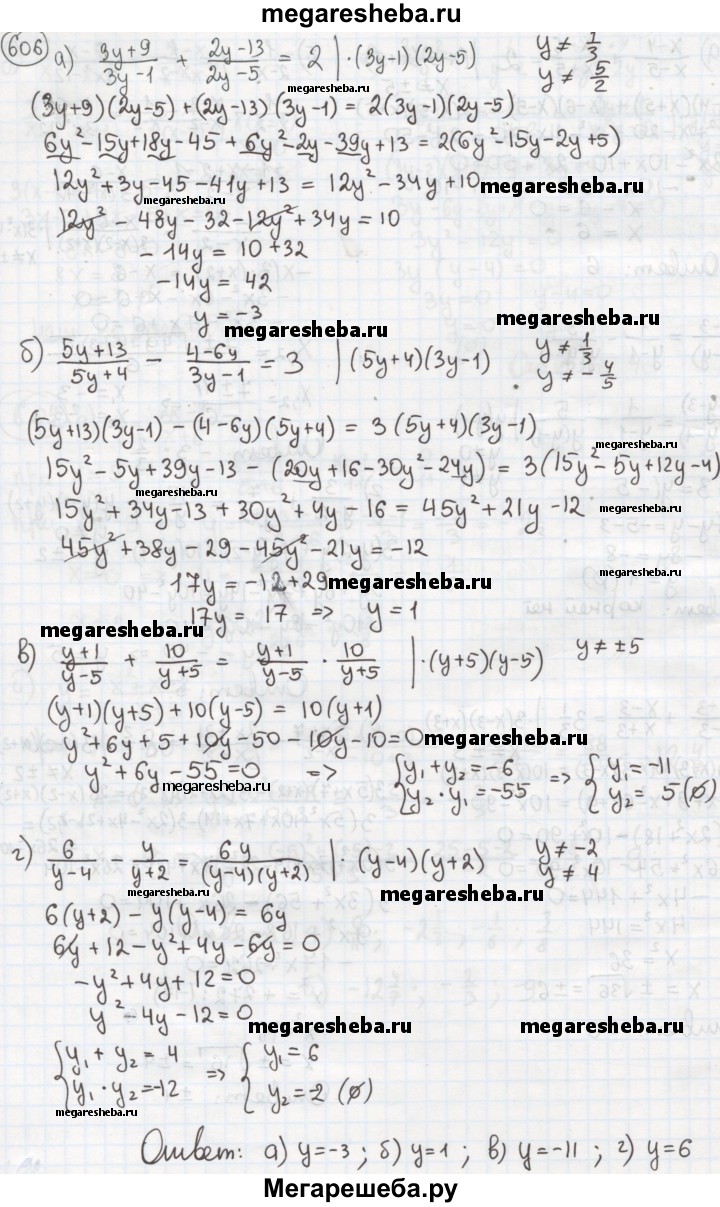 megaresheba.ru
606 а) (3y+9)/(3y-1) + (2y-13)/(2y-5) = 2 | ·(3y-1)(2y-5) y ≠ 1/3
y ≠ 5/2
megaresheba.ru
(3y+9)(2y-5)+(2y-13)(3y-1) = 2(3y-1)(2y-5)
6y²-15y+18y-45+6y²-2y-39y+13 = 2(6y²-15y-2y+5)
12y²+3y-45-41y+13 = 12y²-34y+10 megaresheba.ru
megaresheba.ru
12y² - 48y - 32 - 12y² + 34y = 10
-14y = 10+32
-14y = 42
y = -3
megaresheba.ru megaresheba.ru
б) (5y+13)/(5y+4) - (4-6y)/(3y-1) = 3 | (5y+4)(3y-1) y ≠ 1/3
y ≠ -4/5
(5y+13)(3y-1) - (4-6y)(5y+4) = 3(5y+4)(3y-1)
megaresheba.ru
15y²-5y+39y-13-(20y+16-30y²-24y) = 3(15y²-5y+12y-4)
megaresheba.ru
15y²+34y-13+30y²+4y-16 = 45y²+21y-12 megaresheba.ru
45y²+38y-29-45y²-21y = -12
17y = -12+29 megaresheba.ru megaresheba.ru
17y = 17 => y = 1
megaresheba.ru
в) (y+1)/(y-5) + 10/(y+5) = (y+1)/(y-5) · 10/(y+5) | ·(y+5)(y-5) y ≠ ±5
(y+1)(y+5)+10(y-5) = 10(y+1)
y²+6y+5+10y-50-10y-10=0 megaresheba.ru
y²+6y-55=0 => { y₁+y₂=-6 => { y₁=-11
y₂·y₁=-55 y₂= 5(∅)
megaresheba.ru
г) 6/(y-4) - y/(y+2) = 6y/((y-4)(y+2)) | ·(y-4)(y+2) y ≠ -2
y ≠ 4
megaresheba.ru megaresheba.ru
6(y+2) - y(y-4) = 6y
6y+12-y²+4y-6y=0
-y²+4y+12=0
y²-4y-12=0
megaresheba.ru megaresheba.ru
{ y₁+y₂=4 => { y₁=6
y₁·y₂=-12 y₂=-2 (∅)
megaresheba.ru
Ответ: а) y=-3; б) y=1; в) y=-11; г) y=6
Мегарешеба.ру